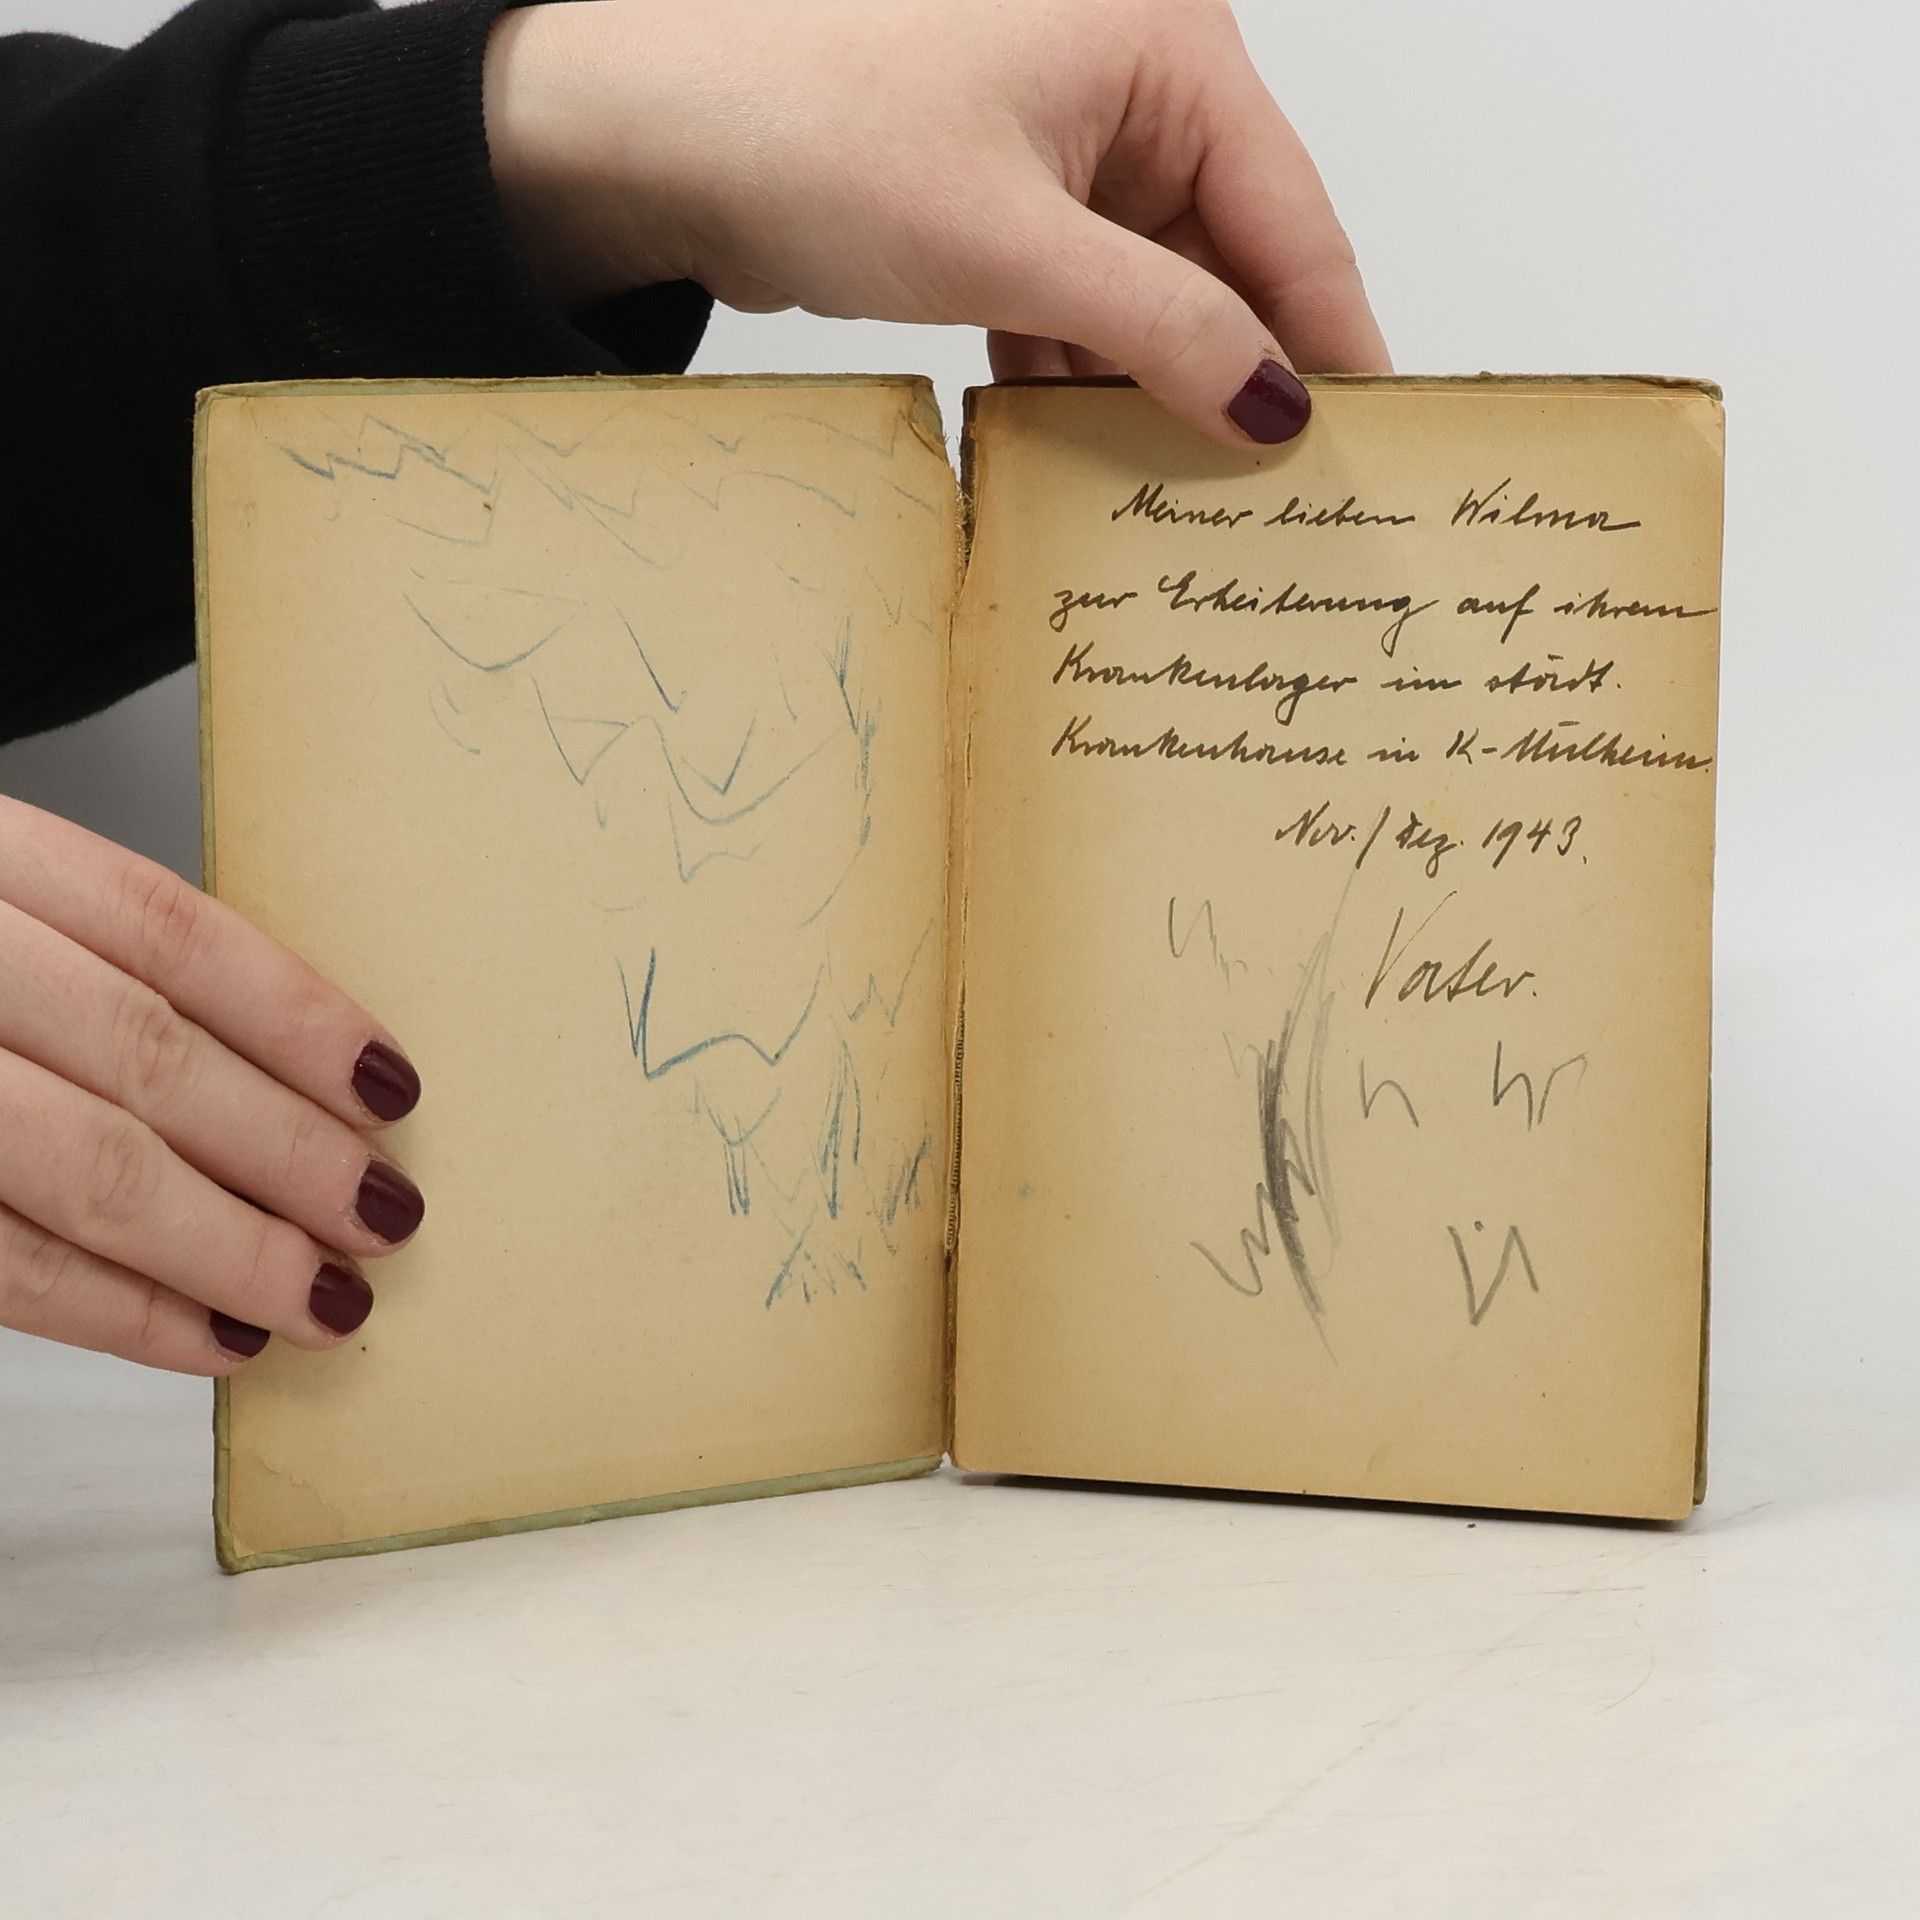 Meiner lieben Wilma
zur Erheiterung auf ihrem
Krankenlager im städt.
Krankenhause in K-Mülheim.
Nov. / Dez. 1943.
Vater.